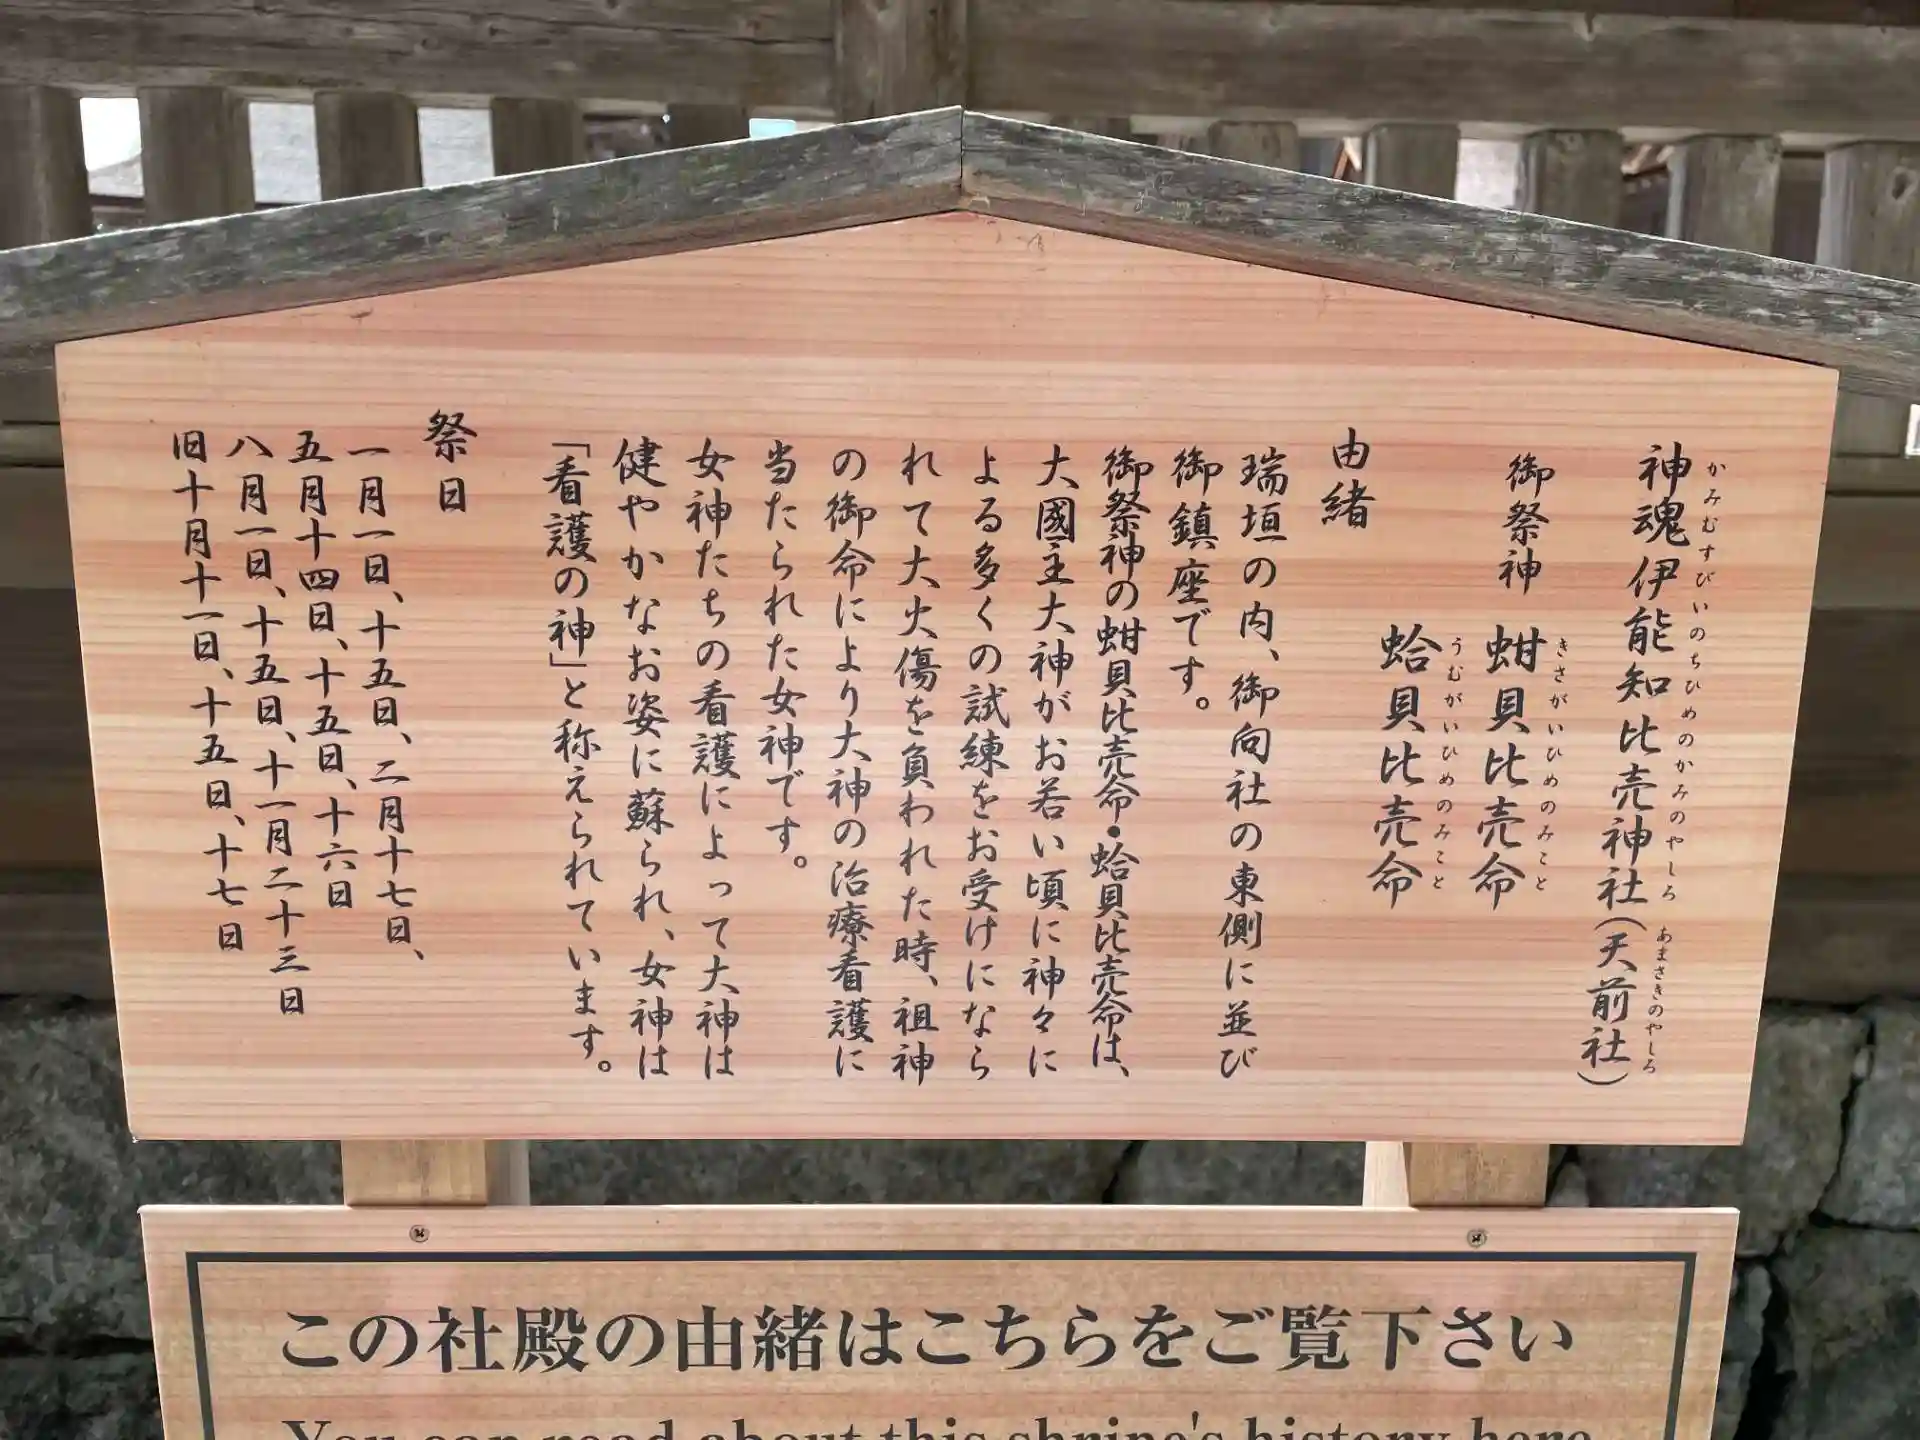 神魂伊能知比売神社(天前社)
かみむすびいのちひめのかみのやしろ あまさきのやしろ
御祭神 蚶貝比売命
きさがいひめのみこと
蛤貝比売命
うむがいひめのみこと
由緒
瑞垣の内、御向社の東側に並び
御鎮座です。
御祭神の蚶貝比売命・蛤貝比売命は、
大國主大神がお若い頃に神々に
よる多くの試練をお受けになら
れて大火傷を負われた時、祖神
の御命により大神の治療看護に
当たられた女神です。
女神たちの看護によって大神は
健やかなお姿に蘇られ、女神は
「看護の神」と称えられています。
祭日
一月一日、十五日、二月十七日、
五月十四日、十五日、十六日
八月一日、十五日、十一月二十三日
旧十月十一日、十五日、十七日
この社殿の由緒はこちらをご覧下さい
You can read about this shrine's history here